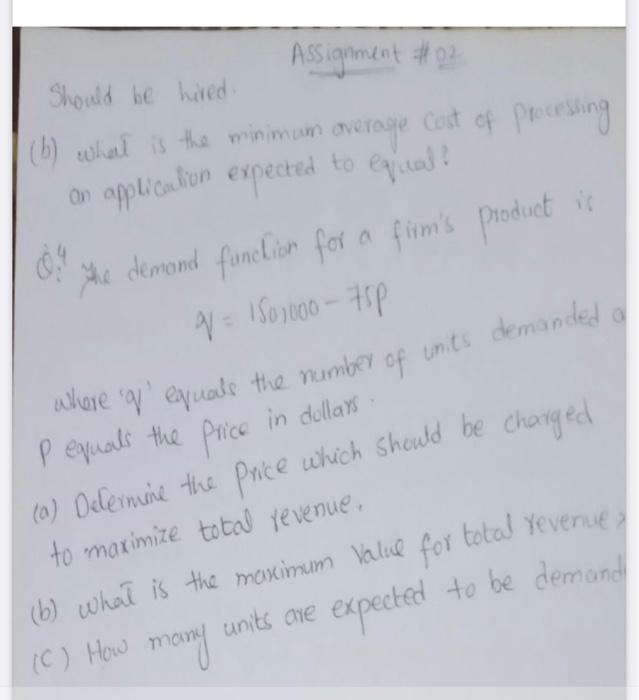 Assignment #02
Should be hired.
(b) what is the minimum average cost of processing
an application expected to equal?
Q:4 The demand function for a firm's product is
q = 150,000 - 75p
where 'q' equals the number of units demanded a
p equals the price in dollars.
(a) Determine the price which should be charged
to maximize total revenue.
(b) what is the maximum value for total revenue?
(C) How many units are expected to be demand